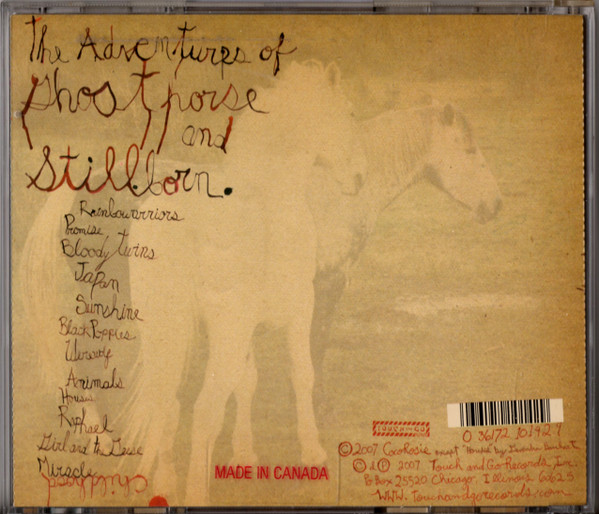 The Adventures of
Ghost horse
and
Stillborn.
Rainbowarriors
Promise
Bloody Twins
Japan
Sunshine
Black Poppies
Werwolf
Animals
Houses
Raphael
Girl and the Geese
Miracle
MADE IN CANADA
TOUCH AND GO
0 36172
©2007 CocoRosie except "Houses" by
©&℗ 2007 Touch and Go Records, Inc.
Po Box 25520 Chicago, Illinois 60625
www.touchandgorecords.com